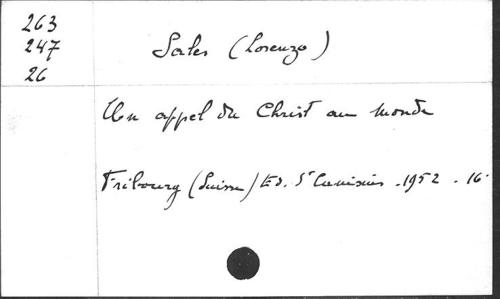 263
247
26
Sales (Lorenzo)
Un appel du Christ au monde
Fribourg (Suisse) Ed. St Canisius . 1952 . 16°